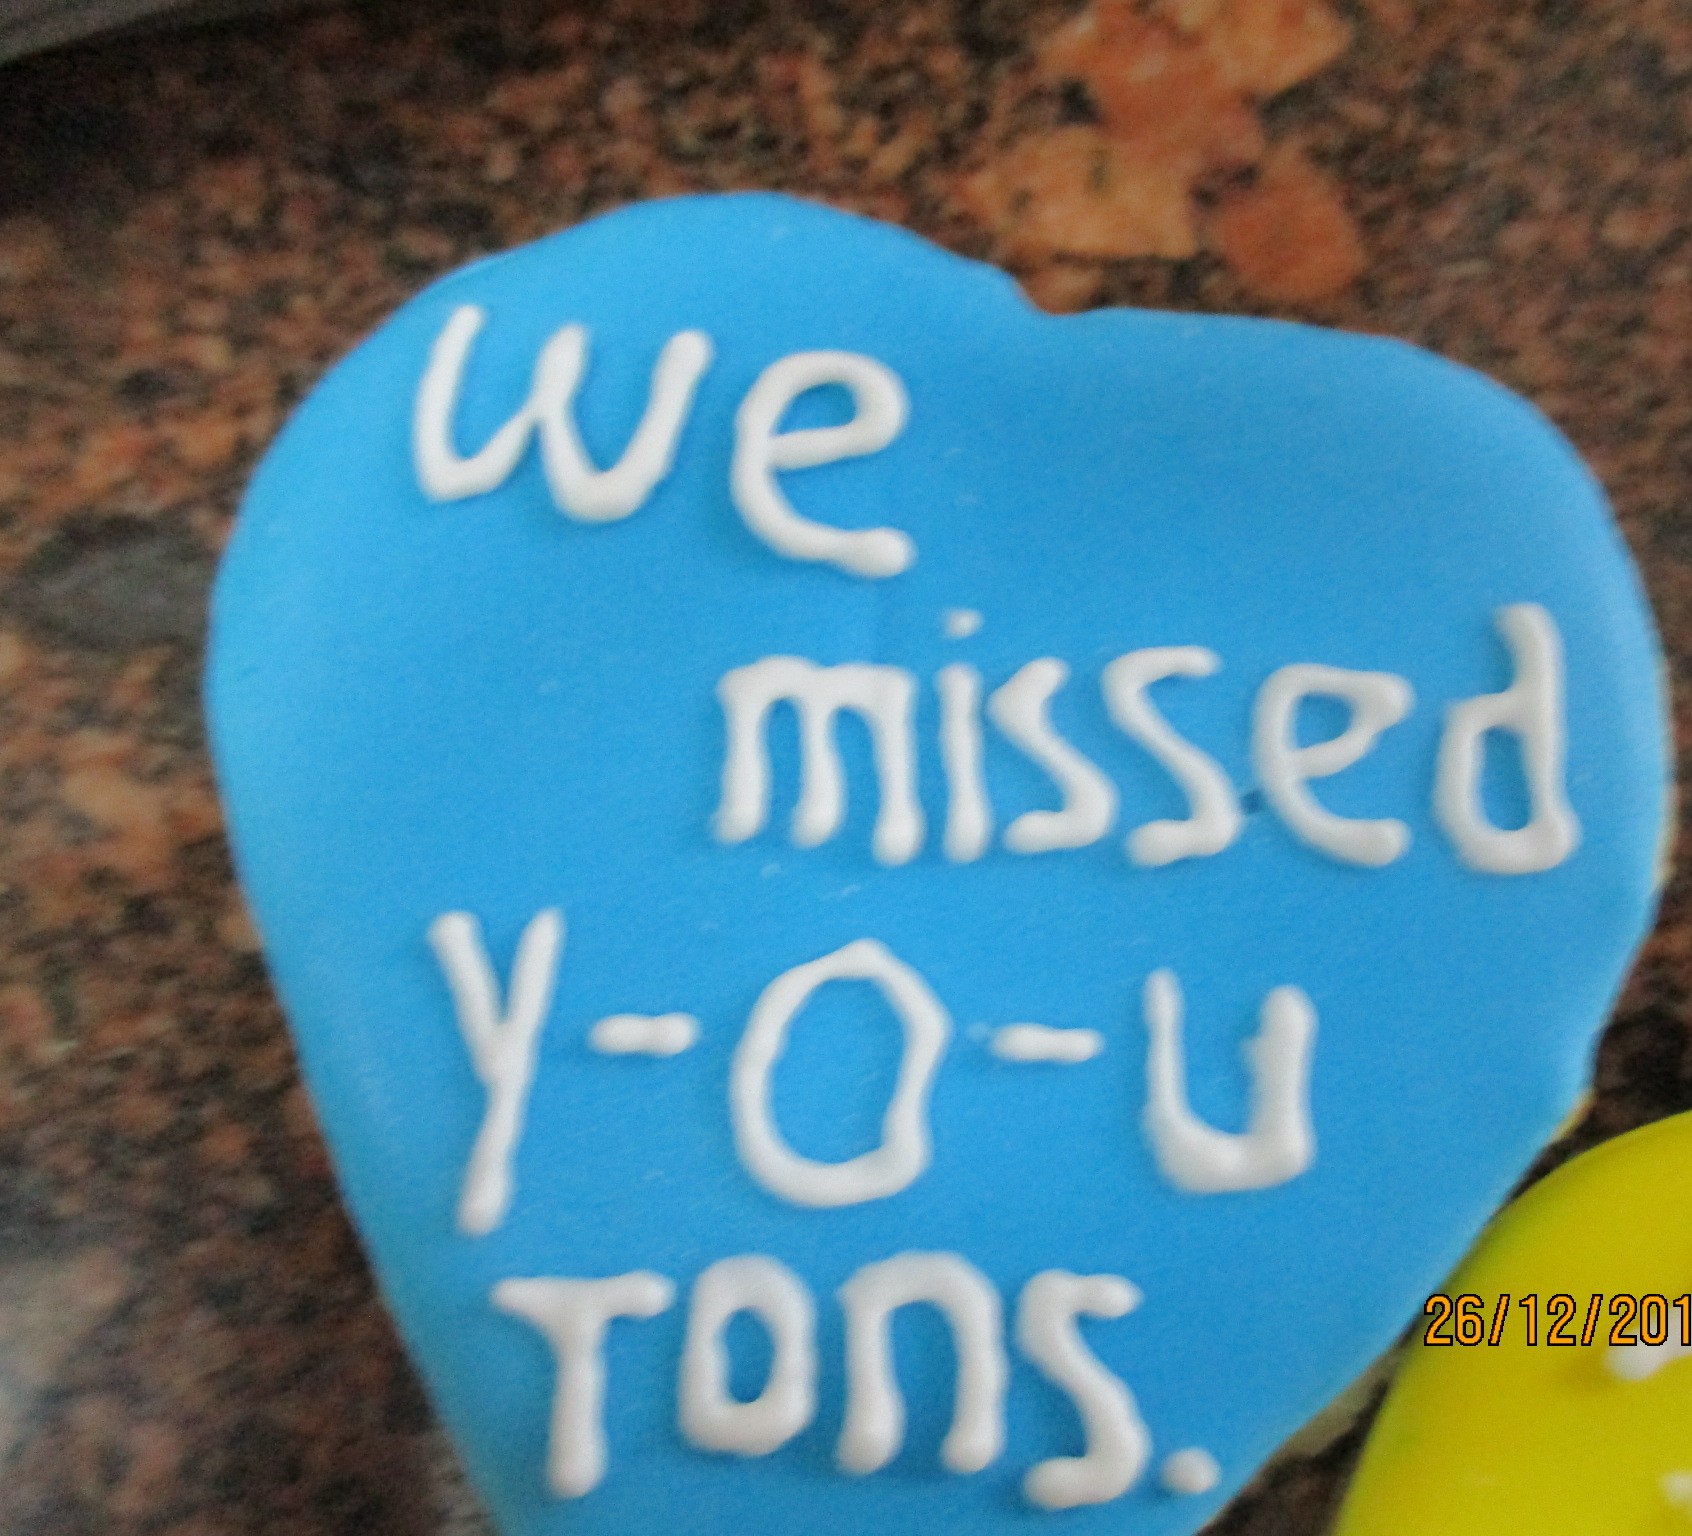 we
missed
Y-O-u
Tons.
26/12/201